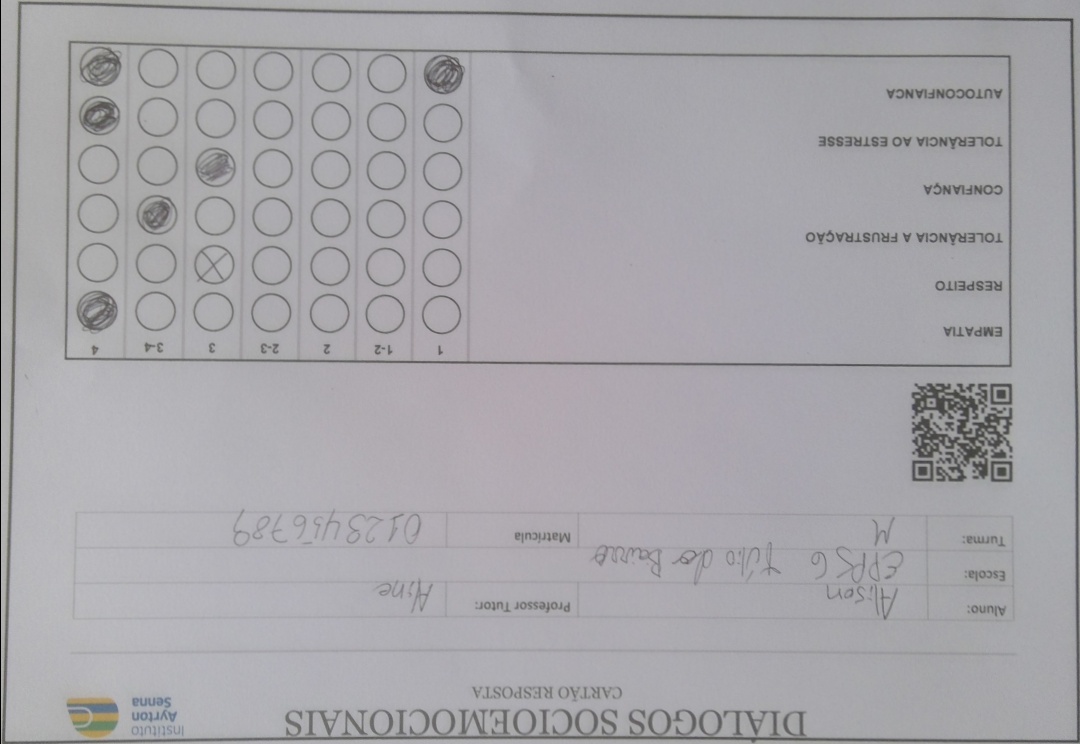 DIÁLOGOS SOCIOEMOCIONAIS
CARTÃO RESPOSTA
Instituto
Ayrton
Senna
Aluno: Alison Professor Tutor: Aline
Escola: EPPSG Túlio do Bairro
Turma: M Matrícula 0123456789
1 1-2 2 2-3 3 3-4 4
EMPATIA
RESPEITO
TOLERÂNCIA A FRUSTRAÇÃO
CONFIANÇA
TOLERÂNCIA AO ESTRESSE
AUTOCONFIANCA